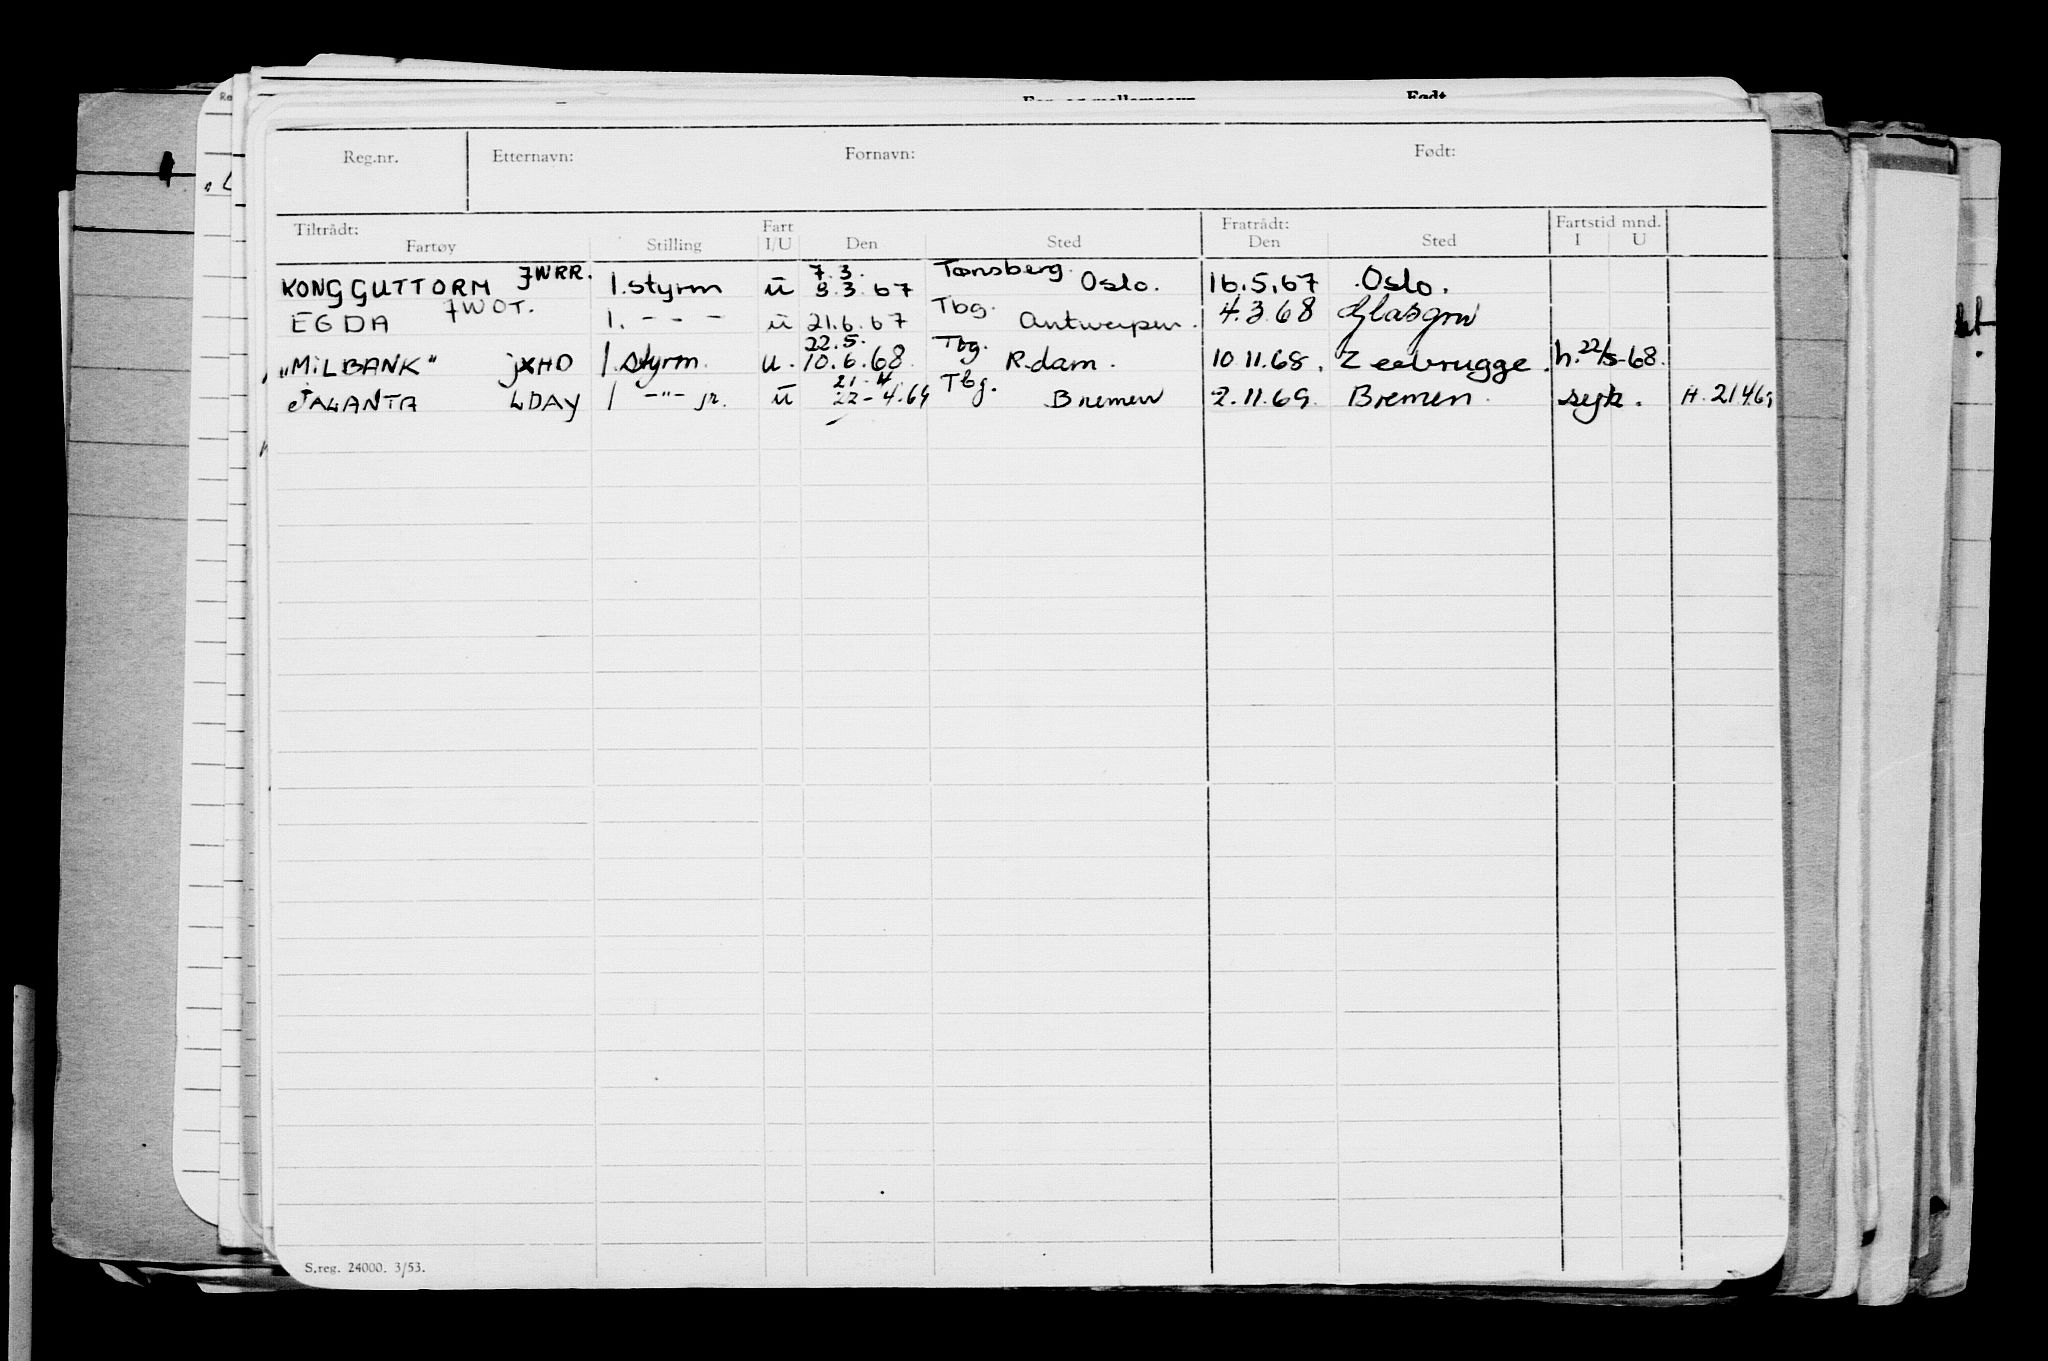 For- og mellomnavn Født
Reg.nr. Etternavn: Fornavn: Født:
Tiltrådt: Fart Fratrådt: Fartstid mnd.
Fartøy Stilling I/U Den Sted Den Sted I U
JWRR. 7.3. Tønsberg.
KONG GUTTORM 1.styrm ū 8.3.67 Oslo. 16.5.67 Oslo.
JWOT. Tbg.
EGDA 1. - - - ū 21.6.67 Antwerpen. 4.3.68 Glasgow
22.5. Tbg.
"MILBANK" jXHD 1.styrm. u. 10.6.68 R.dam. 10.11.68. Zeebrugge. h.22/5-68.
21-4 Tbg.
JALANTA LDAY 1 -"- jr. ū 22-4.69 Bremen 2.11.69. Bremen. syk. H.21.4.69
S.reg. 24000. 3/53.